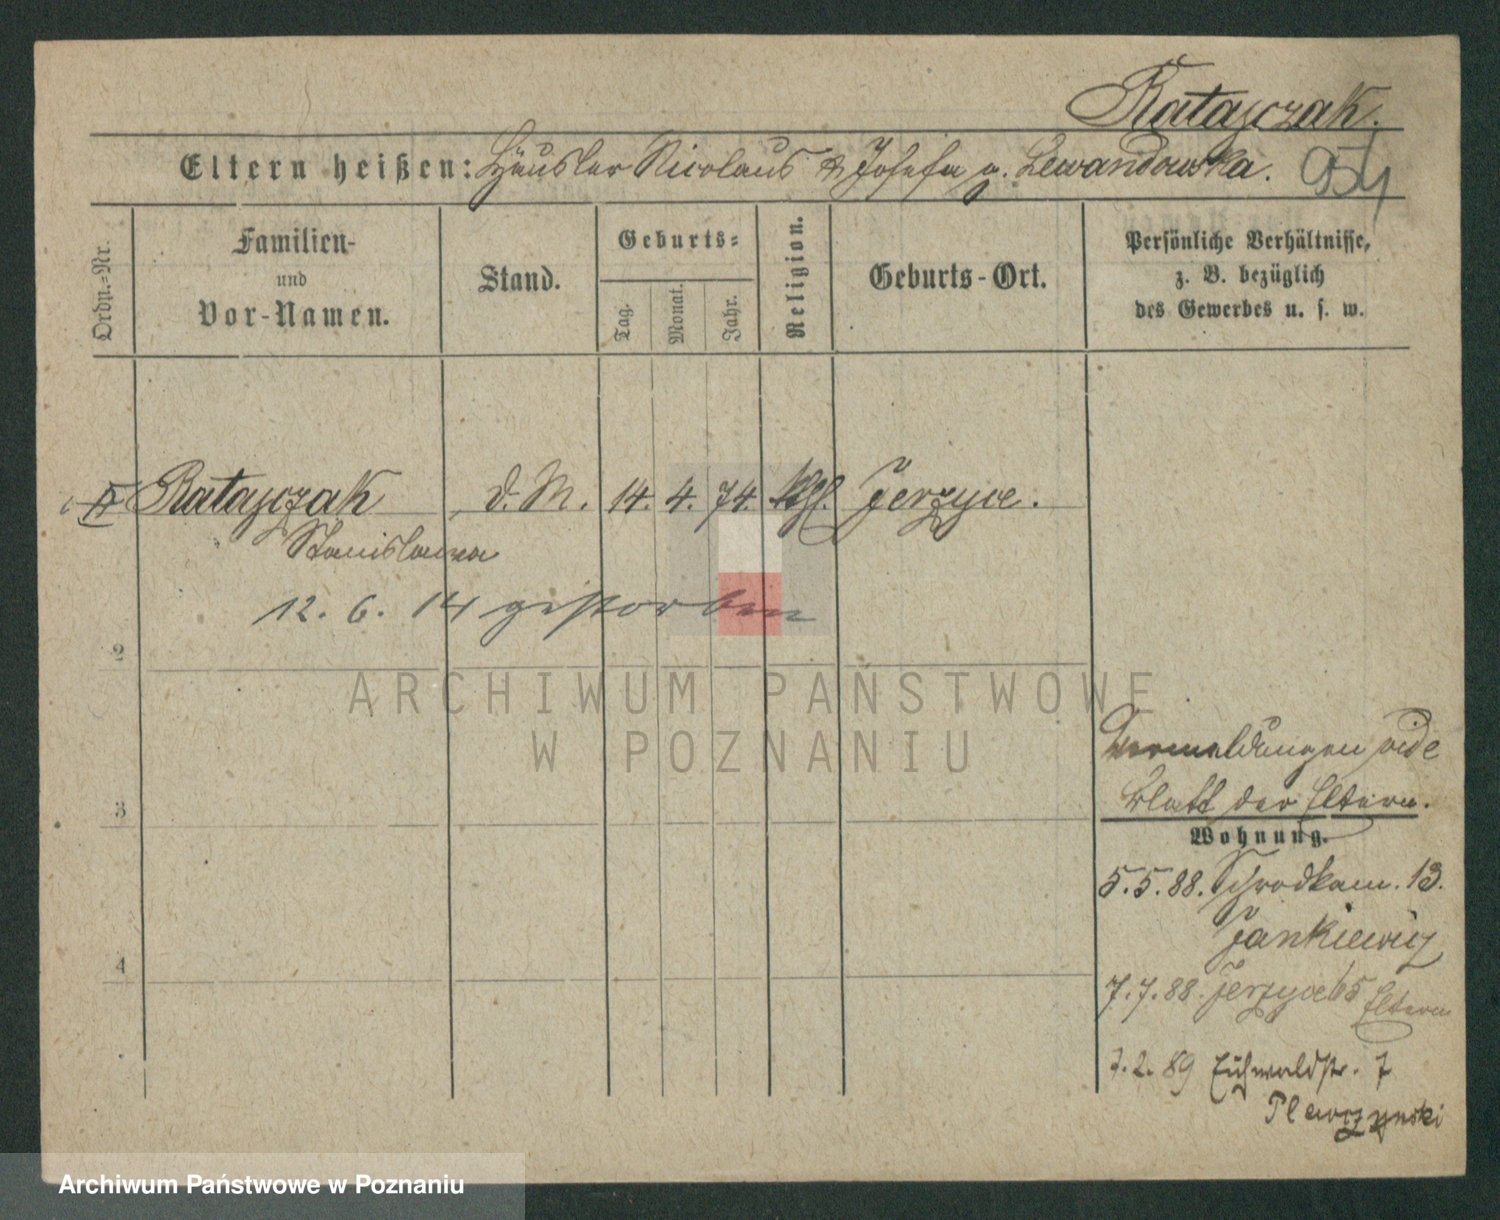 Ratajczak.
Eltern heißen: Häusler Nicolaus & Josefa g. Lewandowska. 954
Ordn.-Nr.
Familien-
und
Vor-Namen.
Stand.
Geburts-
Tag.
Monat.
Jahr.
Religion.
Geburts-Ort.
Persönliche Verhältnisse,
z. B. bezüglich
des Gewerbes u. s. w.
Ratajczak d. M. 14. 4. 74. kath. Jerzyce.
Stanislawa
12. 6. 14 gestorben
2
ARCHIWUM PAŃSTWOWE
W POZNANIU
Vermeldungen vide
Blatt der Eltern.
3
Wohnung.
5. 5. 88. Schrodkam. 13.
Jankiewicz
4
7. 7. 88. Jerzyce 65 Eltern
7. 2. 89 Eichwaldstr. 7
Plewczynski
Archiwum Państwowe w Poznaniu